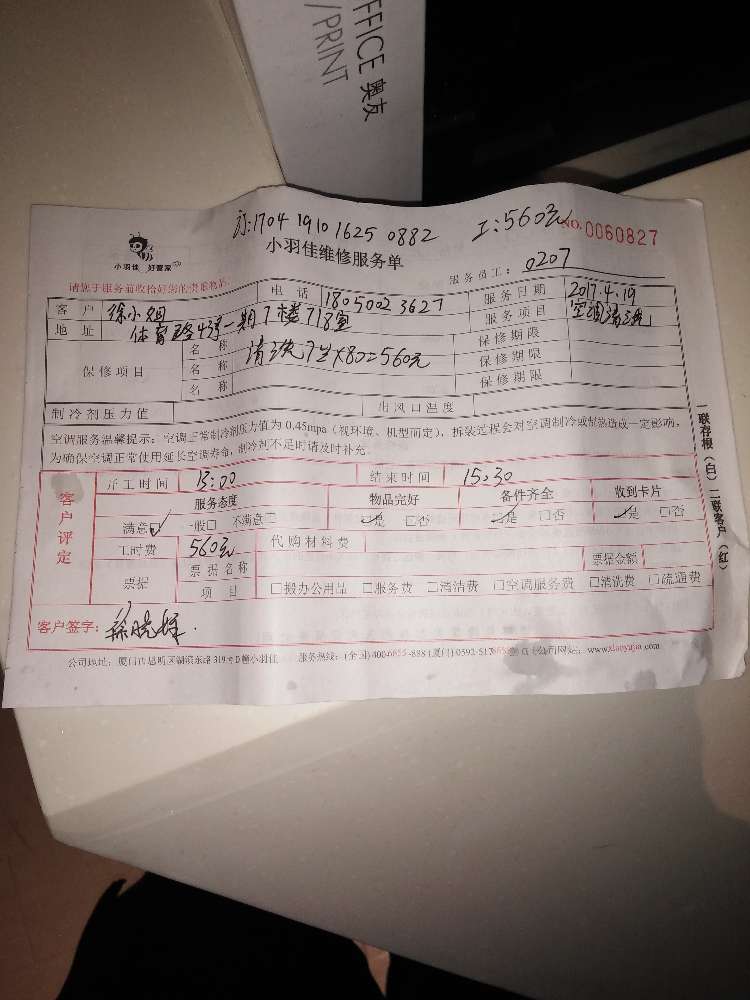 OFFICE 奥友
/PRINT
订:1704 1910 1625 0882 工:560元 NO.0060827
小羽佳 好管家
小羽佳维修服务单
服务员工: 0207
请您于服务前收拾好您的贵重物品
客户 徐小姐 电话 18050023627 服务日期 2017.4.19
地址 一期7楼718室 服务项目 空调清洗
保修项目 名称 清洗7台×80=560元 保修期限
名称 保修期限
名称 保修期限
制冷剂压力值 出风口温度
空调服务温馨提示:空调正常制冷剂压力值为0.45mpa(视环境、机型而定),拆装过程会对空调制冷或制热造成一定影响,
为确保空调正常使用延长空调寿命,制冷剂不足时请及时补充。
客户评定
开工时间 13:00 结束时间 15:30
服务态度 物品完好 备件齐全 收到卡片
满意☑ 一般□ 不满意□ ☑是 □否 ☑是 □否 ☑是 □否
工时费 560元 代购材料费
票据 票据名称 票据金额
项目 □搬办公用品 □服务费 □清洁费 □空调服务费 □清洗费 □疏通费
客户签字:
公司地址:厦门市思明区湖滨东路319号D幢小羽佳 服务热线:(全国)400-6855-888 (厦门)0592-517 公司网站:www.xiaoyujia.com
一联存根(白) 二联客户(红)